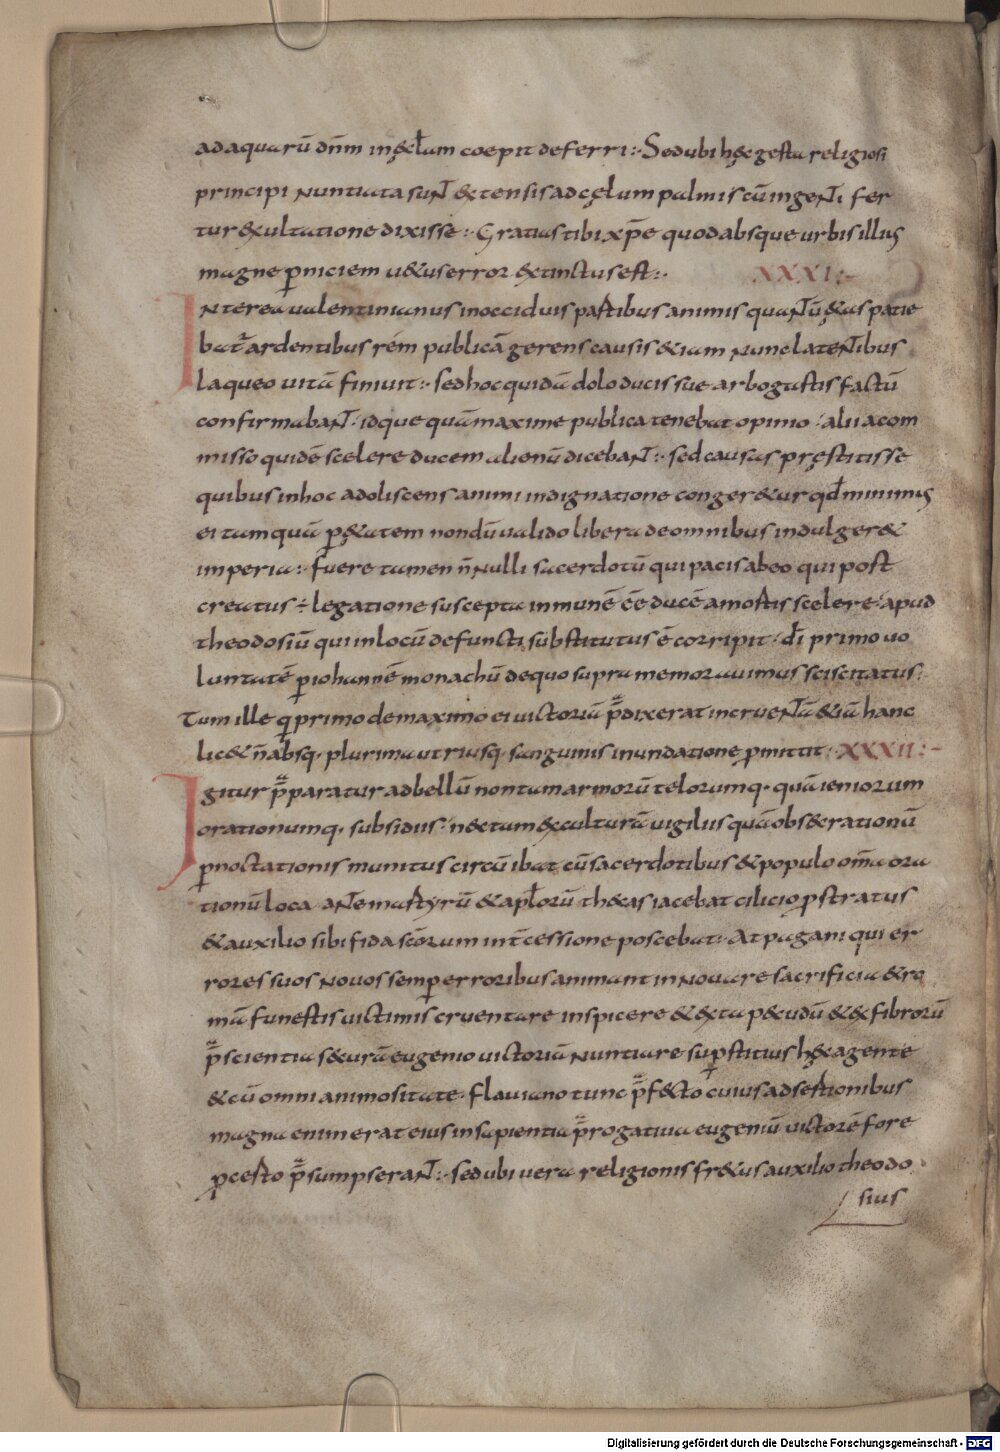 ad aquarū dn̄m in ęcl̄am coepit deferri:· Sed ubi hęc gesta religiosi
principi nuntiata sunt & tensis ad cęlum palmis cū ingenti fer
tur exultatione dixisse:· Gratias tibi xp̄e quod absque urbis illius
magne p̱niciem u&us error extinctus est:· XXXI:-
Interea ualentinianus in occiduis partibus animis quantū ętas patie
bat̄ ardentibus rem publicā gerens causis &iam nunc latentibus
laqueo uitā finiuit:· sed hoc quidā dolo ducis sue arbogastis factū
confirmabant· idque quā maxime publica tenebat opinio· alii a com
misso quidē scelere ducem alionū dicebant:· sed causas pręstitisse
quibus in hoc adoliscens animi indignatione conger&ur qd̄ minimus
ei tamquā p̱ &atem nondū ualido libera de omnibus indulger&
imperia:· fuere tamen n̄nulli sacerdotū qui pacis ab eo qui post
creatus ÷ legatione suscepta inmunē ēe ducē a mostis scelere· apud
theodosiū qui in locū defuncti substitutus ē corripit· dī primo uo
luntatē p̱ iohannē monachū de quo supra memorauimus sciscitatus:
Tum ille q̱ primo de maximo ei uictoriā p̄dixerat incruentā &iā hanc
lic& n̄ absq· plurima utriusq· sanguinis inundatione p̱mittit:· XXXII:-
Igitur p̄paratur ad bellū non tam armorū telorumq· quā ieniorum
orationumq· subsidiis· nec tam excultarū uigiliis quā obsecrationū
p̱noctationis munitus circū ibat cū sacerdotibus & populo om̄a ora
tionū loca ante mastyrū & apl̄orū thecas iacebat cilicio p̱stratus
& auxilio sibi fida sc̄orum int̄cessione poscebat· At pagani qui er
rores suos nouos semp̱ erroribus animant innouare sacrificia & ro
mā funestis uictimis cruentare inspicere & exta p&udū & ex fibrorū
p̄scientia securā eugenio uictoriā nuntiare sup̱stitius hęc agente
& cū omni animositate· flauiano tunc p̄fecto cuius adsestionibus
magna enim erat eius in sapientia p̄rogatiua eugeniū uictorē fore
p̱cesto p̄sumpserant:· sed ubi uera religionis fr&us auxilio theodo
sius
Digitalisierung gefördert durch die Deutsche Forschungsgemeinschaft - DFG